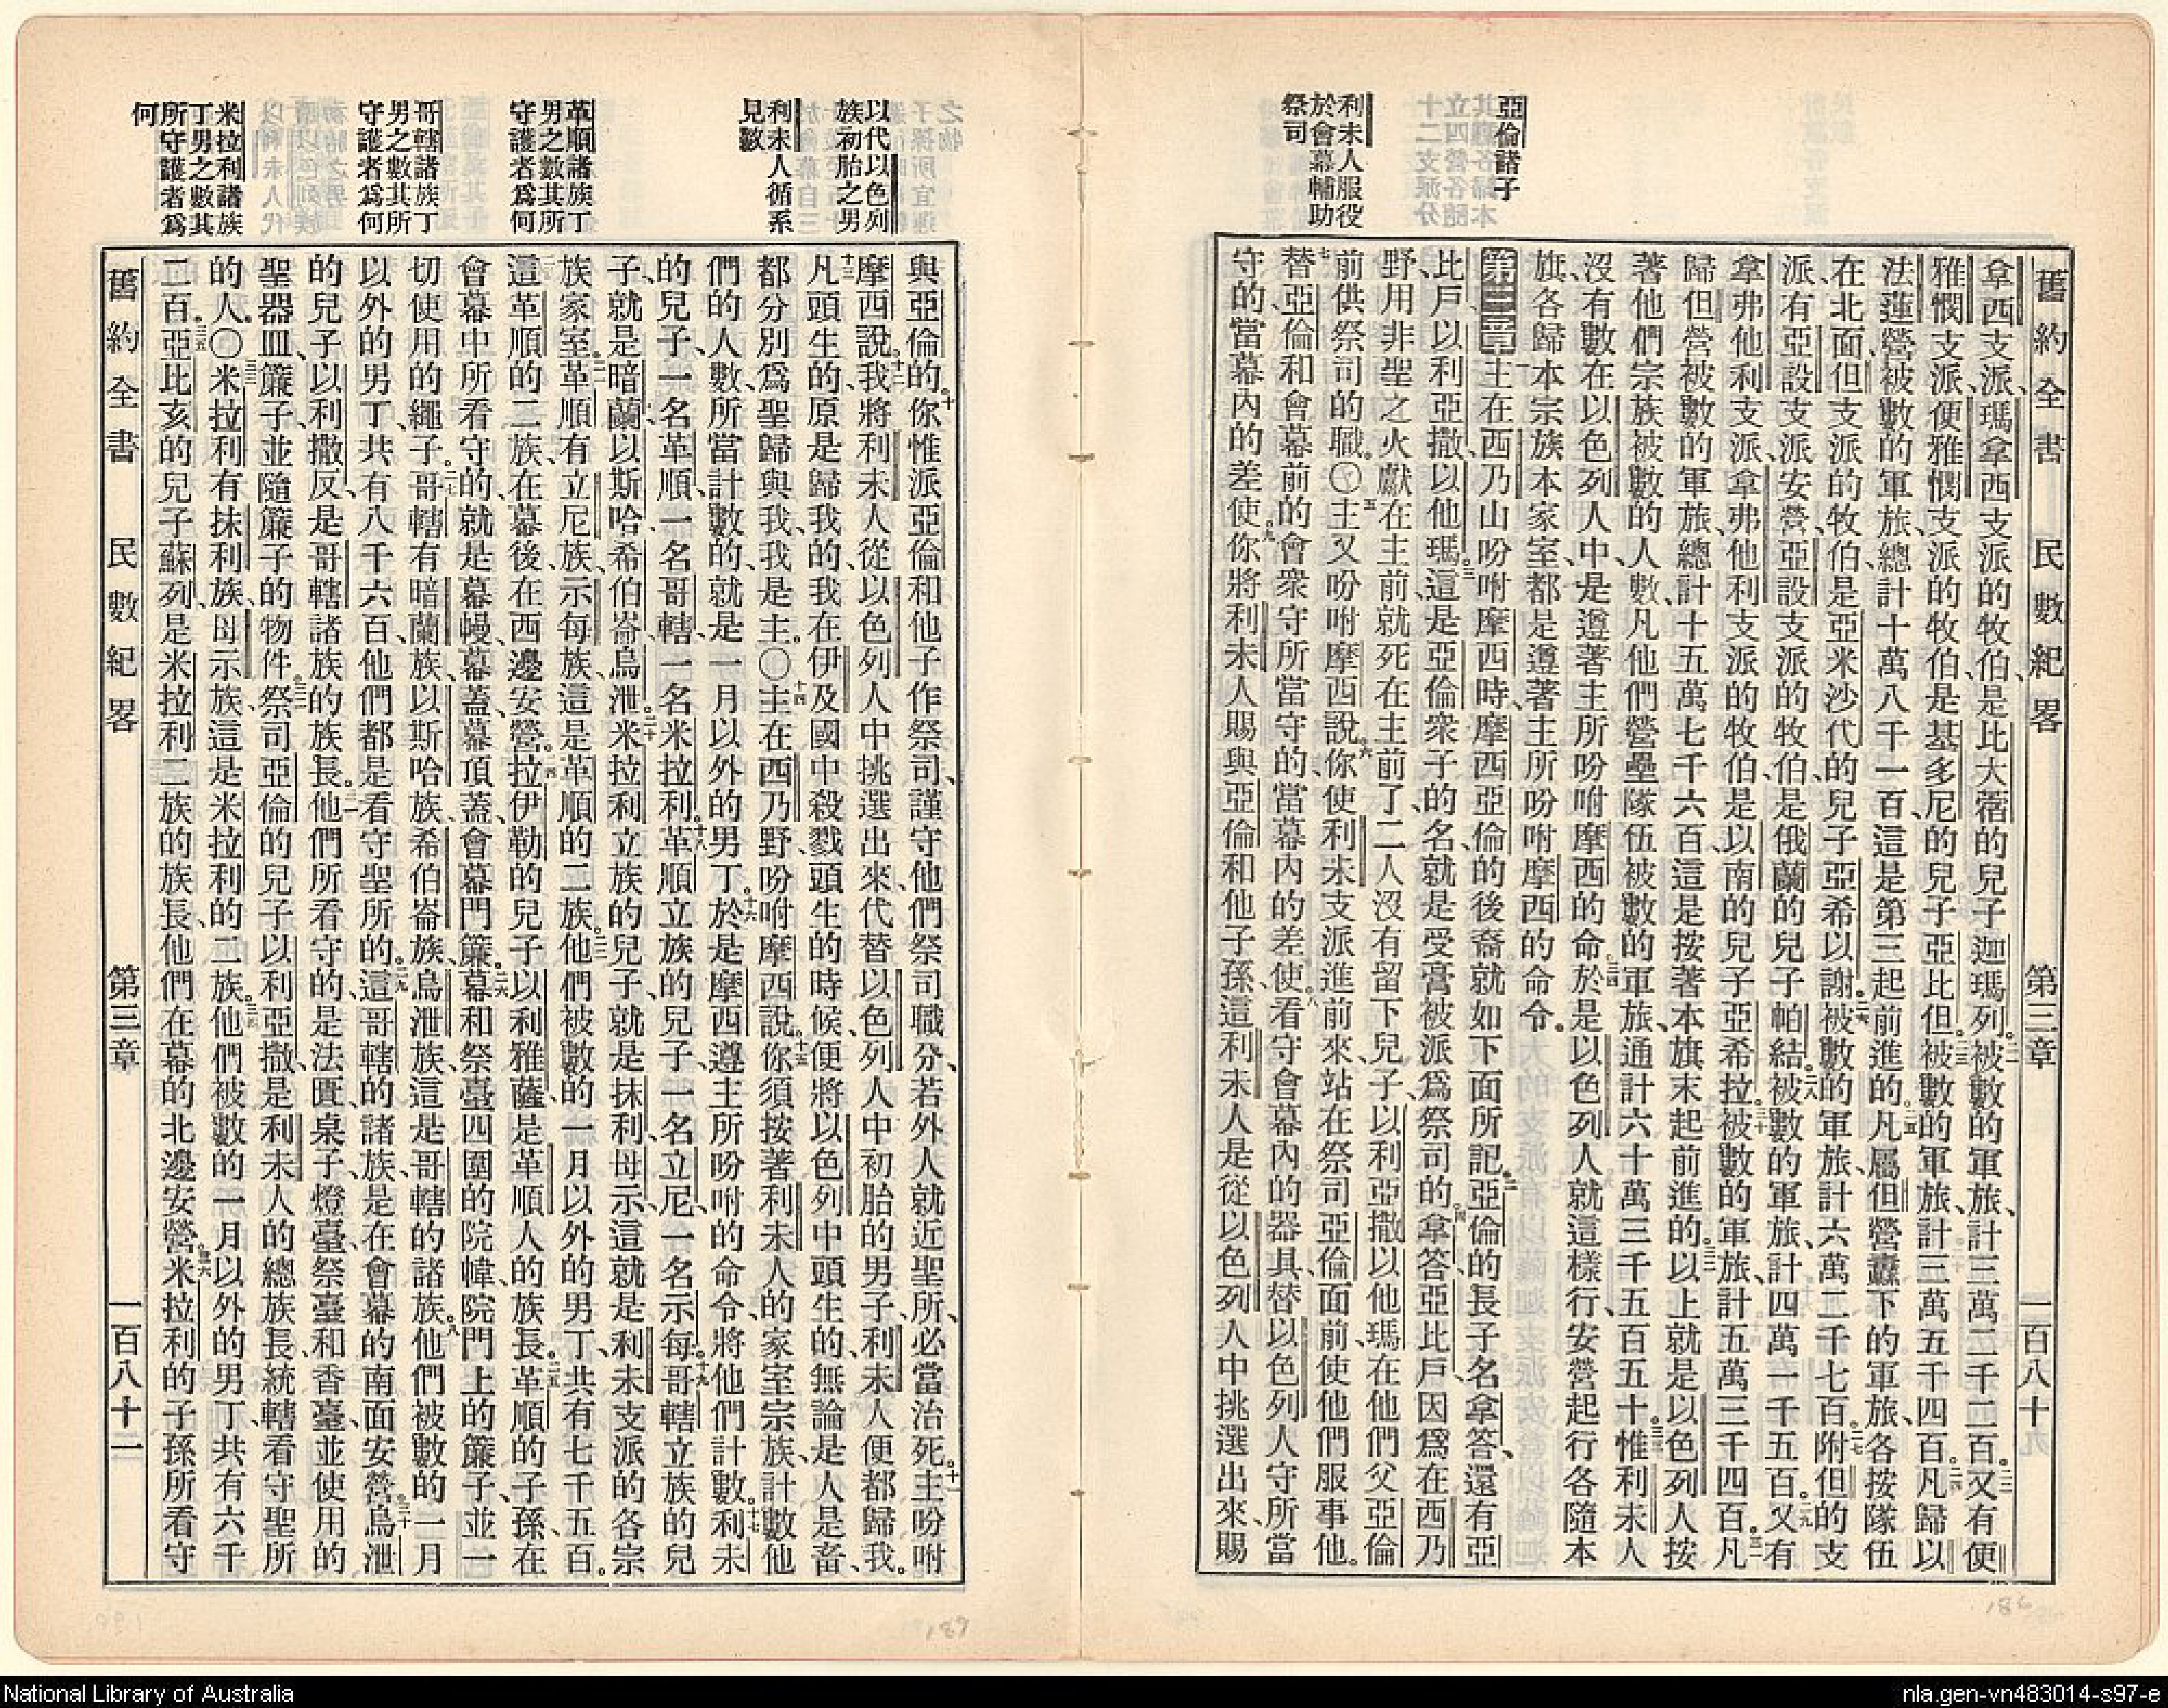 舊約全書　民數紀畧　第三章　一百八十九
拿西支派、瑪拿西支派的牧伯、是比大蓿的兒子迦瑪列。二一被數的軍旅、計三萬二千二百。二二又有便
雅憫支派、便雅憫支派的牧伯、是基多尼的兒子亞比但。二三被數的軍旅、計三萬五千四百。二四凡歸以
法蓮營被數的軍旅、總計十萬八千一百、這是第三起前進的。二五凡屬但營纛下的軍旅、各按隊伍
在北面、但支派的牧伯、是亞米沙代的兒子亞希以謝。二六被數的軍旅、計六萬二千七百。二七附但的支
派、有亞設支派安營、亞設支派的牧伯、是俄蘭的兒子帕結。二八被數的軍旅、計四萬一千五百。二九又有
拿弗他利支派、拿弗他利支派的牧伯、是以南的兒子亞希拉。三十被數的軍旅、計五萬三千四百。三一凡
歸但營被數的軍旅、總計十五萬七千六百、這是按著本旗末起前進的。三二以上就是以色列人按
著他們宗族被數的人數、凡他們營壘隊伍被數的軍旅、通計六十萬三千五百五十。三三惟利未人
沒有數在以色列人中、是遵著主所吩咐摩西的命。三四於是以色列人就這樣行、安營起行、各隨本
旗、各歸本宗族本家室、都是遵著主所吩咐摩西的命令。
第三章一主在西乃山吩咐摩西時、摩西亞倫的後裔就如下面所記。二亞倫的長子名拿答、還有亞
比戶、以利亞撒、以他瑪。三這是亞倫衆子的名、就是受膏被派爲祭司的。四拿答亞比戶、因爲在西乃
野、用非聖之火獻在主前、就死在主前了、二人沒有留下兒子、以利亞撒以他瑪在他們父亞倫
前供祭司的職。〇五主又吩咐摩西說。六你使利未支派進前來、站在祭司亞倫面前、使他們服事他。
七替亞倫和會幕前的會衆守所當守的、當幕內的差使。八看守會幕內的器具、替以色列人守所當
守的、當幕內的差使。九你將利未人賜與亞倫和他子孫、這利未人是從以色列人中挑選出來、賜
亞倫諸子
利未人服役
於會幕輔助
祭司
與亞倫的。十你惟派亞倫和他子作祭司、謹守他們祭司職分、若外人就近聖所、必當治死。十一主吩咐
摩西說。十二我將利未人從以色列人中挑選出來、代替以色列人中初胎的男子、利未人便都歸我。
十三凡頭生的、原是歸我的、我在伊及國中殺戮頭生的時候、便將以色列中頭生的、無論是人是畜、
都分別爲聖歸與我、我是主。〇十四主在西乃野吩咐摩西說。十五你須按著利未人的家室宗族、計數他
們的人數、所當計數的、就是一月以外的男丁。十六於是摩西遵主所吩咐的命令、將他們計數。十七利未
的兒子、一名革順、一名哥轄、一名米拉利。十八革順立族的兒子、一名立尼、一名示每。十九哥轄立族的兒
子、就是暗蘭、以斯哈、希伯崙、烏泄。二十米拉利立族的兒子、就是抹利、母示、這就是利未支派的各宗
族家室。二一革順有立尼族、示每族、這是革順的二族。二二他們被數的一月以外的男丁、共有七千五百。
二三這革順的二族、在幕後、在西邊安營。二四拉伊勒的兒子以利雅薩、是革順人的族長。二五革順的子孫、在
會幕中所看守的、就是幕幔、幕蓋、幕頂蓋、會幕門簾。二六幕和祭臺四圍的院幃、院門上的簾子、並一
切使用的繩子。二七哥轄有暗蘭族、以斯哈族、希伯崙族、烏泄族、這是哥轄的諸族。二八他們被數的一月
以外的男丁、共有八千六百、他們都是看守聖所的。二九這哥轄的諸族、是在會幕的南面安營。三十烏泄
的兒子以利撒反、是哥轄諸族的族長。三一他們所看守的、是法匱、桌子、燈臺、祭臺和香臺、並使用的
聖器皿、簾子、並隨簾子的物件。三二祭司亞倫的兒子以利亞撒、是利未人的總族長、統轄看守聖所
的人。〇三三米拉利有抹利族、母示族、這是米拉利的二族。三四他們被數的一月以外的男丁、共有六千
二百。三五亞比亥的兒子蘇列、是米拉利二族的族長、他們在幕的北邊安營。三六米拉利的子孫所看守
舊約全書　民數紀畧　第三章　一百八十二
以代以色列
族初胎之男
利未人循系
見數
革順諸族丁
男之數其所
守護者爲何
哥轄諸族丁
男之數其所
守護者爲何
米拉利諸族
丁男之數其
所守護者爲
何
National Library of Australia
nla.gen-vn483014-s97-e